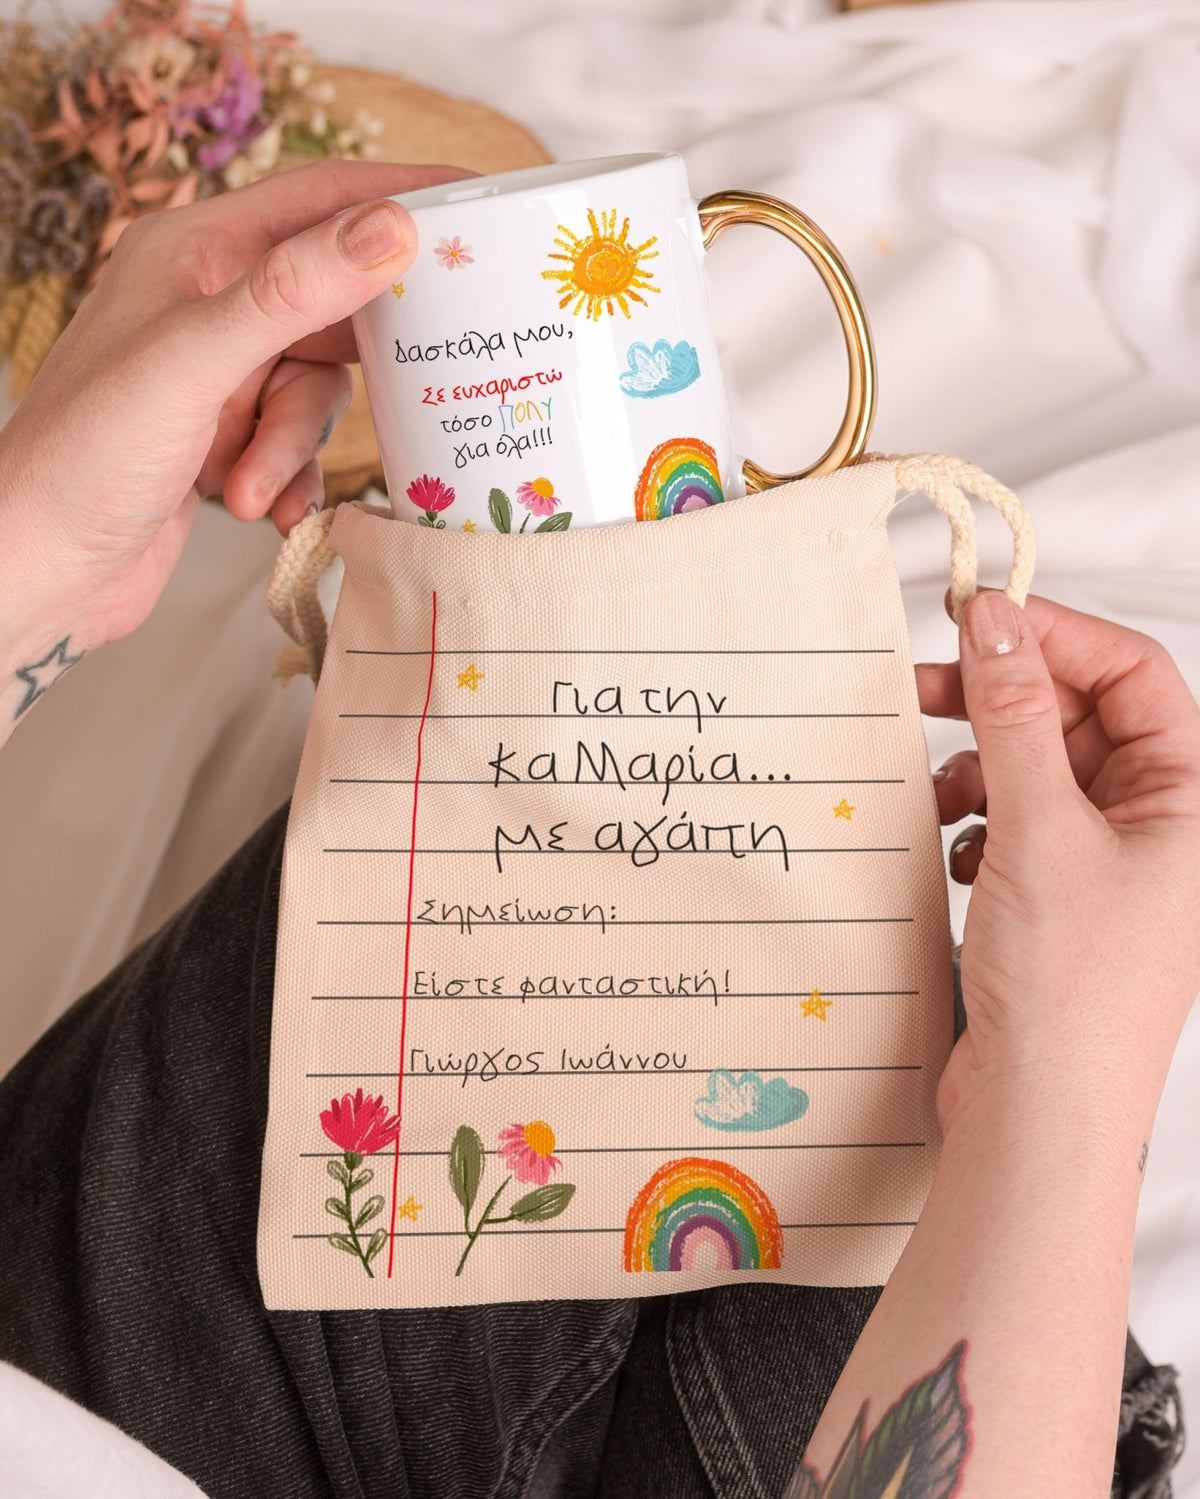 Δασκάλα μου,
Σε ευχαριστώ
τόσο ΠΟΛΥ
για όλα!!!
Για την
κα Μαρία...
με αγάπη
Σημείωση:
Είστε φανταστική!
Γιώργος Ιωάννου